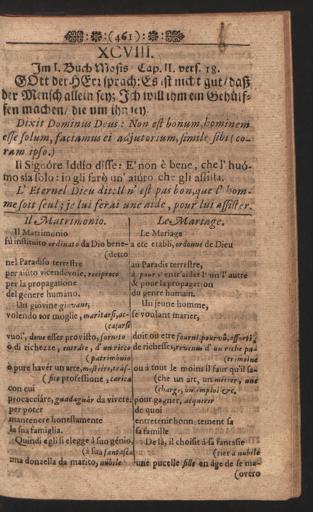 (461)
XCVIII.
Im I. Buch Mosis Cap. II. vers. 18.
GOtt der HErr sprach: Es ist nicht gut/ daß
der Mensch allein sey; Ich will ihm ein Gehülf-
fen machen/ die um ihn sey.
Dixit Dominus Deus: Non est bonum, hominem
esse solum, faciamus ei adjutorium, simile sibi (co-
ram ipso.)
Il Signore Iddio disse: E' non è bene, che l' huó-
mo sia solo: io gli farò un' aiúto che gli assista.
L' Eternel Dieu dit: Il n' est pas bon, que l' hom-
me soit seul; je lui ferai une aide, pour lui assister.
Il Matrimonio.
Il Matrimonio
fù instituito ordinato da Dio bene-
(detto
nel Paradiso terrestre
per aiúto vicendévole, reciproco
per la propagatione
del génere humano.
Un gióvine giovane,
volendo tor moglie, maritarsi, ac-
(casarsi
vuol', deve esser provisto, fornito
ò di richezze, entrate, d' un ricco
(património
ò pure havér un arte,
fio professione, carica
con cui
procacciáre, guadagnár da vivere,
per potér
mantenére honestamente
la sua famiglia.
Quindi egli si elegge à suo génio,
(à sua fantasia
una donzella da marito, nubile
Le Mariage.
Le Mariage
a eté établi, ordonné de Dieu
au Paradis terrestre,
à pour s' entr'aider l' un l' autre
& pour la propagation
du genre humain.
Un jeune homme,
se voulant marier,
doit ou etre fourni pourvû, assorti,
de richesses, revenus d' un riche pa-
(trimoine
ou à tout le moins il faut qu'il sa-
(che un art, un métier, une
(charge, un emploi &c.
pour gagner, acquerir
de quoi
entretenir honnetement
sa famille.
De là, il choisit à sa fantasie
une pucelle fille en âge de se ma-
(overo